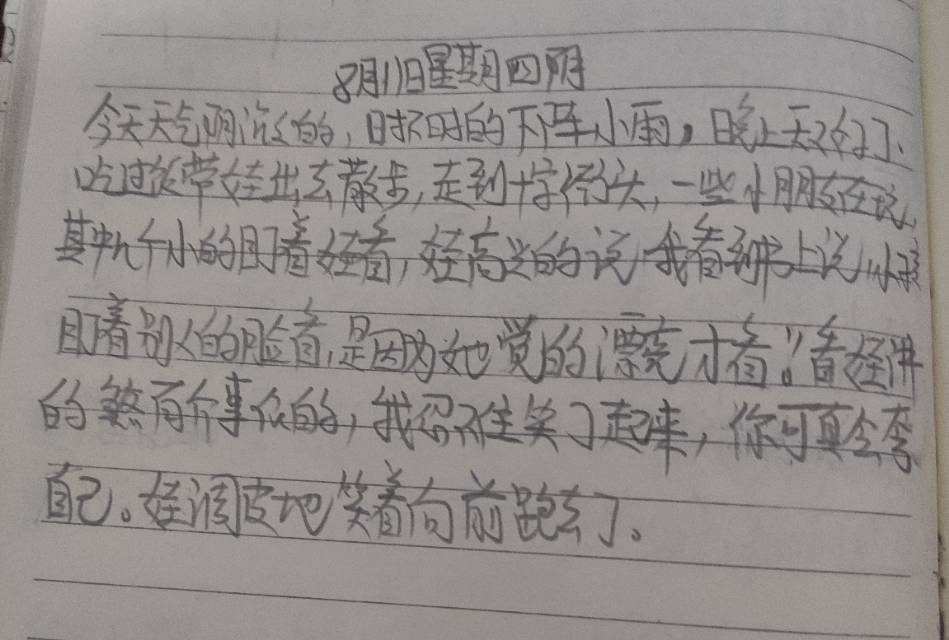 8月11日星期四阴
今天天气阴沉沉的,时不时的下阵小雨,晚上天才好了、
吃过饭带娃出去散步,走到十字街头,一些小朋友在玩,
其中几个小的盯着娃看,娃高兴的说 我看到书上说,小孩
盯着别人的脸看,是因为她觉的漂亮才看。"看娃讲
的煞有介事似的,我忍不住笑了起来,你可真会夸
自己。娃调皮地笑着向前跑去了。